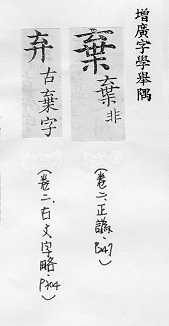 增廣字學舉隅
棄 棄非
(卷二、正譌.
弃 古棄字
(卷二.古文字略.